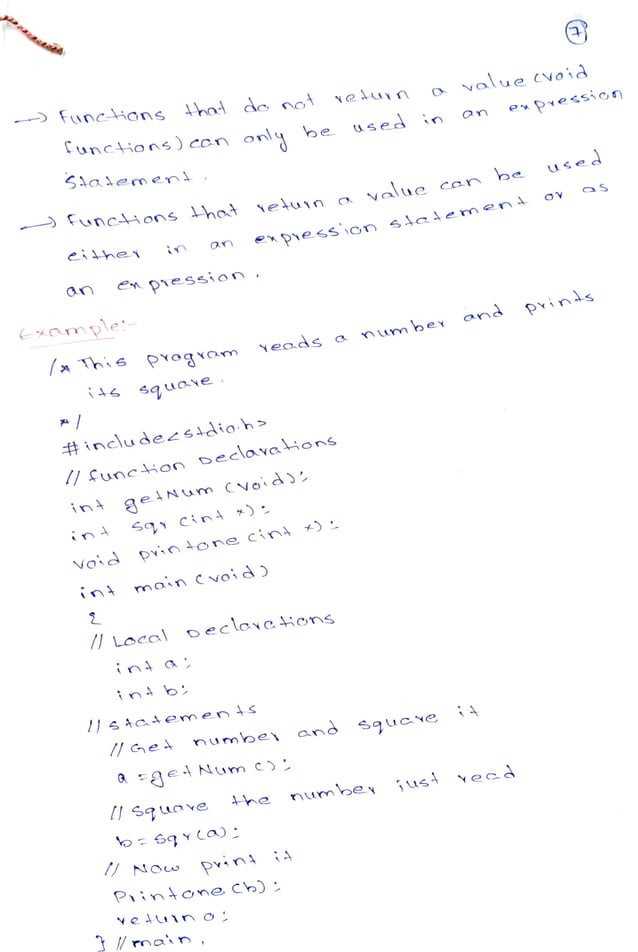 7
→ Functions that do not return a value (void
functions) can only be used in an expression
Statement.
→ Functions that return a value can be used
either in an expression statement or as
an expression.
Example:-
/* This program reads a number and prints
its square.
*/
#include<stdio.h>
// function Declarations
int getNum (void);
int sqr (int x);
void printone (int x);
int main (void)
{
// Local Declarations
int a;
int b;
// statements
// Get number and square it
a = getNum ();
// square the number just read
b = sqr(a);
// Now print it
Printone (b);
return 0;
} // main.